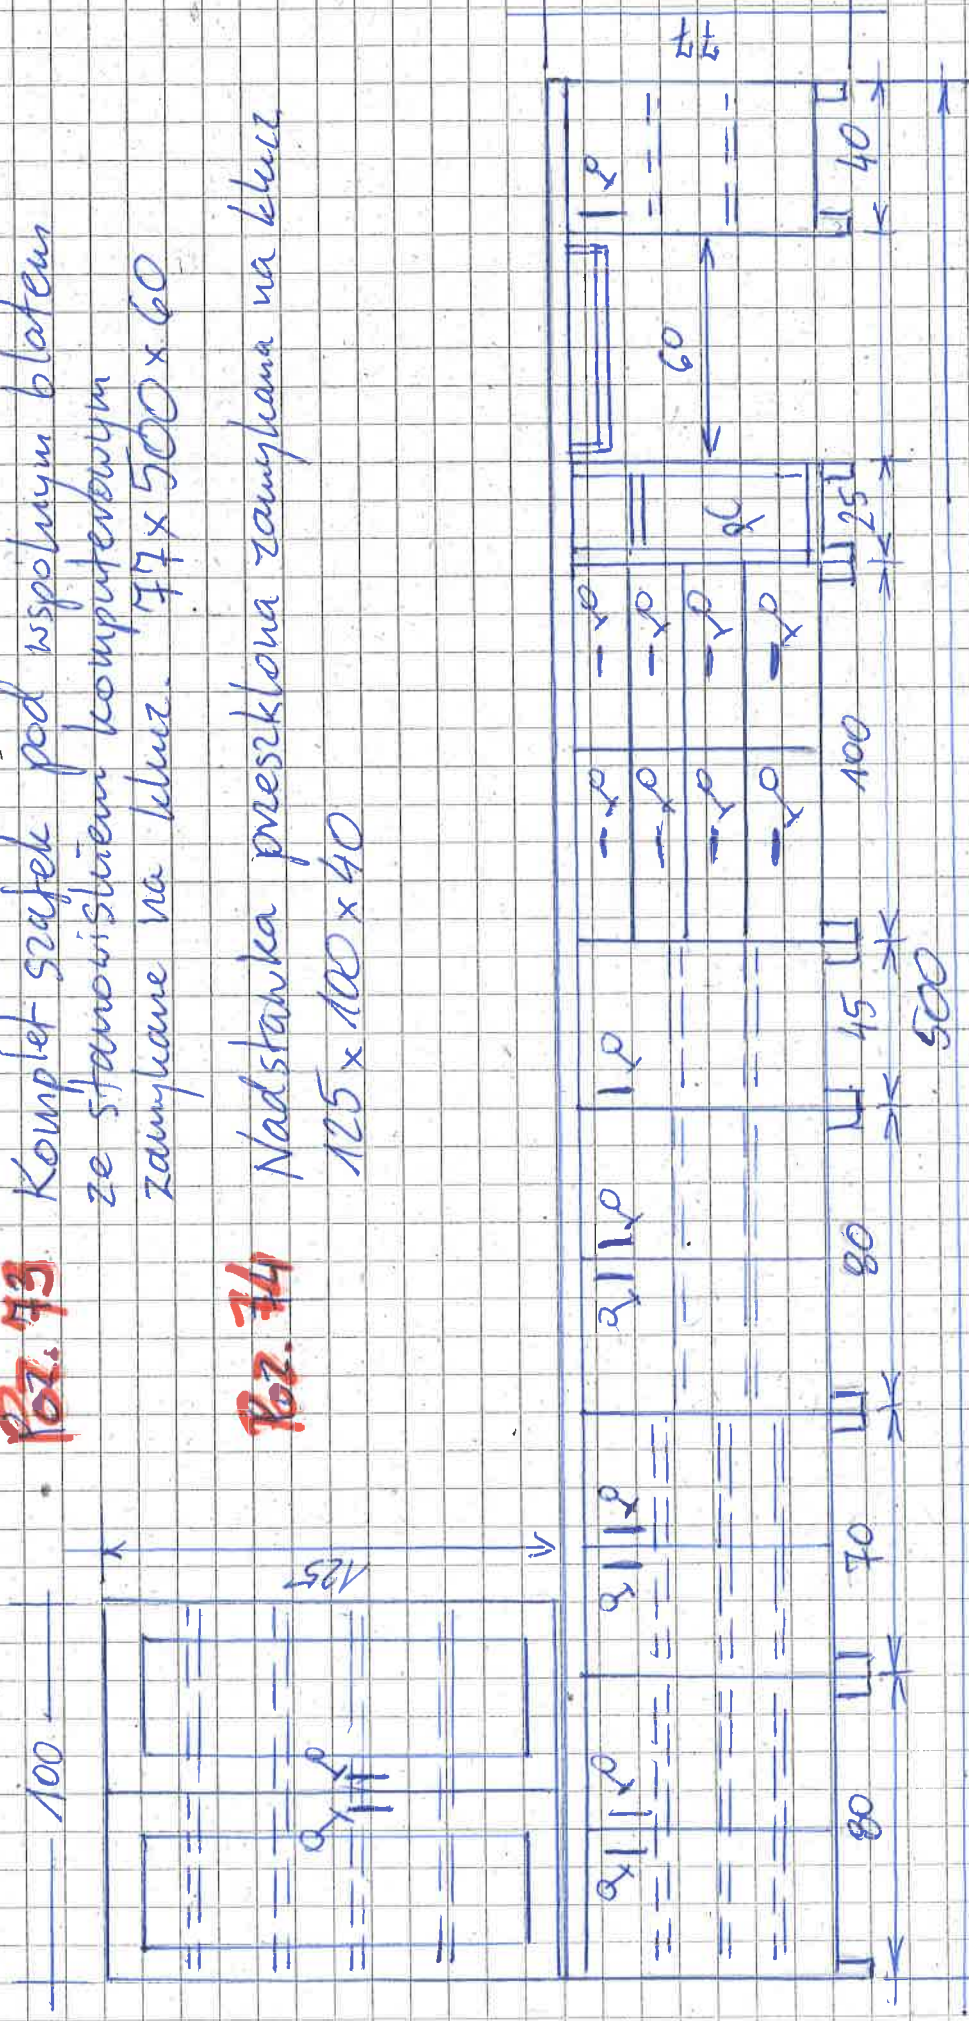 Poz. 73 Komplet szafek pod wspólnym blatem
ze stanowiskiem komputerowym
zamykane na klucz. 77 x 500 x 60
Poz. 74 Nadstawka przeszklona zamykana na klucz
125 x 100 x 40
100
125
77
60
80
70
80
45
100
25
40
500